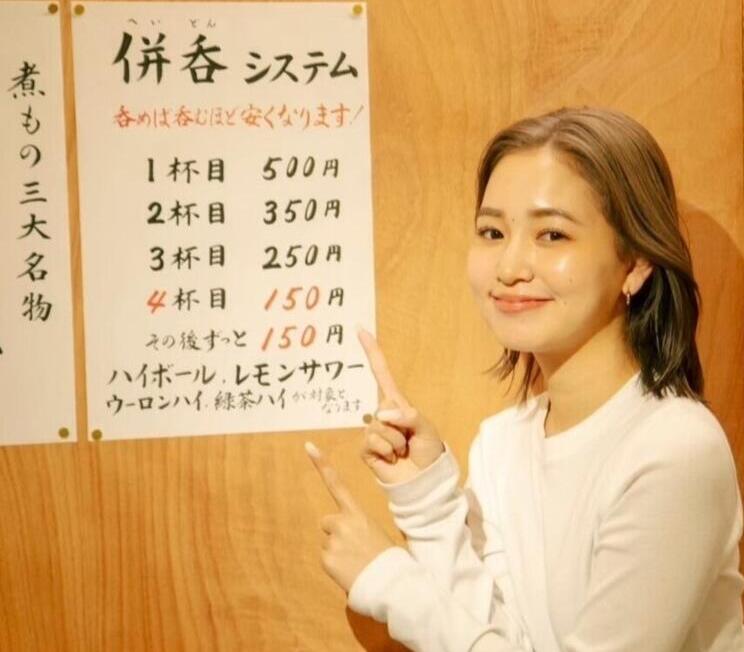 へいどん
併呑システム
呑めば呑むほど安くなります!
1杯目 500円
2杯目 350円
3杯目 250円
4杯目 150円
その後ずっと 150円
ハイボール、レモンサワー
ウーロンハイ、緑茶ハイが対象と
なります
煮もの三大名物